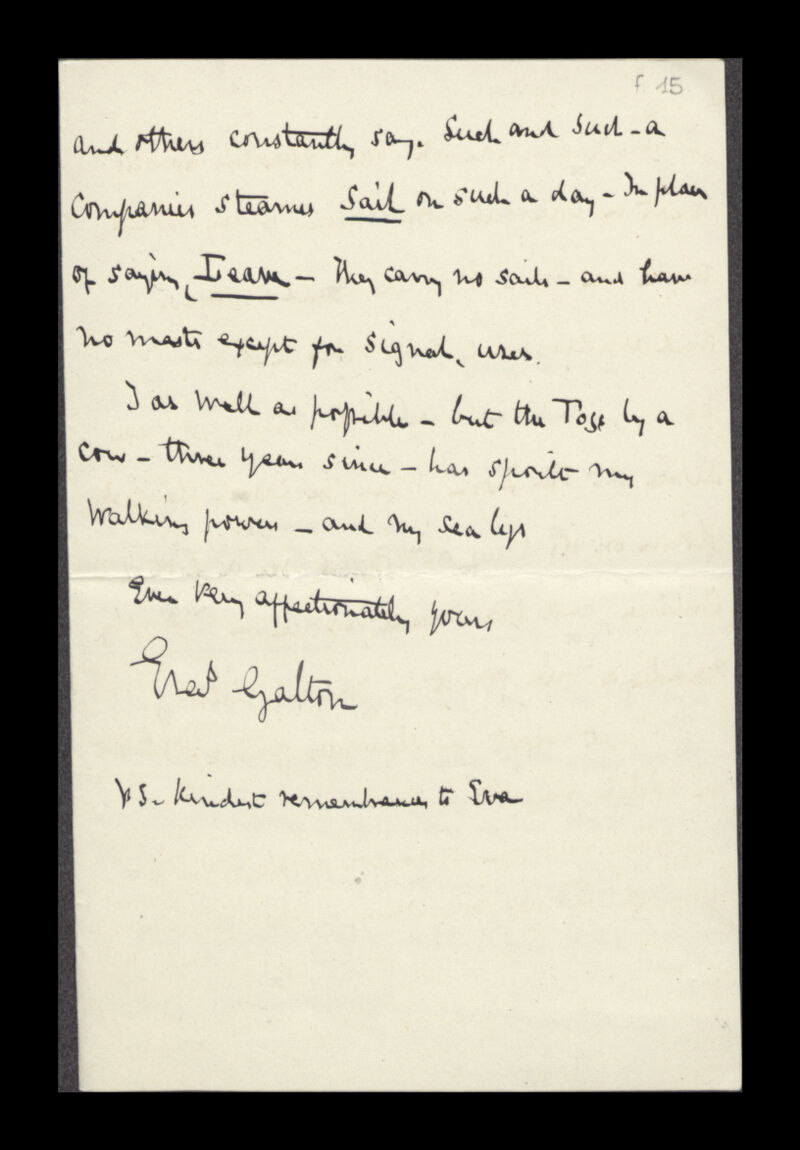 f. 15
and others constantly say. Such and Such - a
Companies steamers Sail on such a day - In place
of saying, Leave - They carry no sails - and have
no masts except for signal, uses.
I as well as possible - but the Toss by a
cow - three years since - has spoilt my
Walking powers - and my sea legs
Ever very affectionately yours
Eras Galton
PS. kindest remembrances to Eva